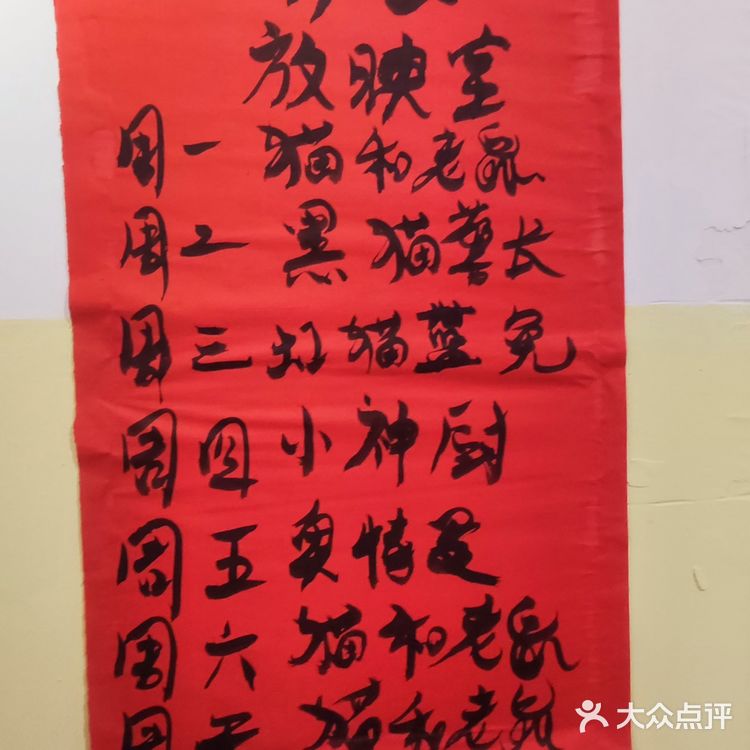 放映室
周一 猫和老鼠
周二 黑猫警长
周三 虹猫蓝兔
周四 小神厨
周五 奥特曼
周六 猫和老鼠
猫和老鼠
大众点评